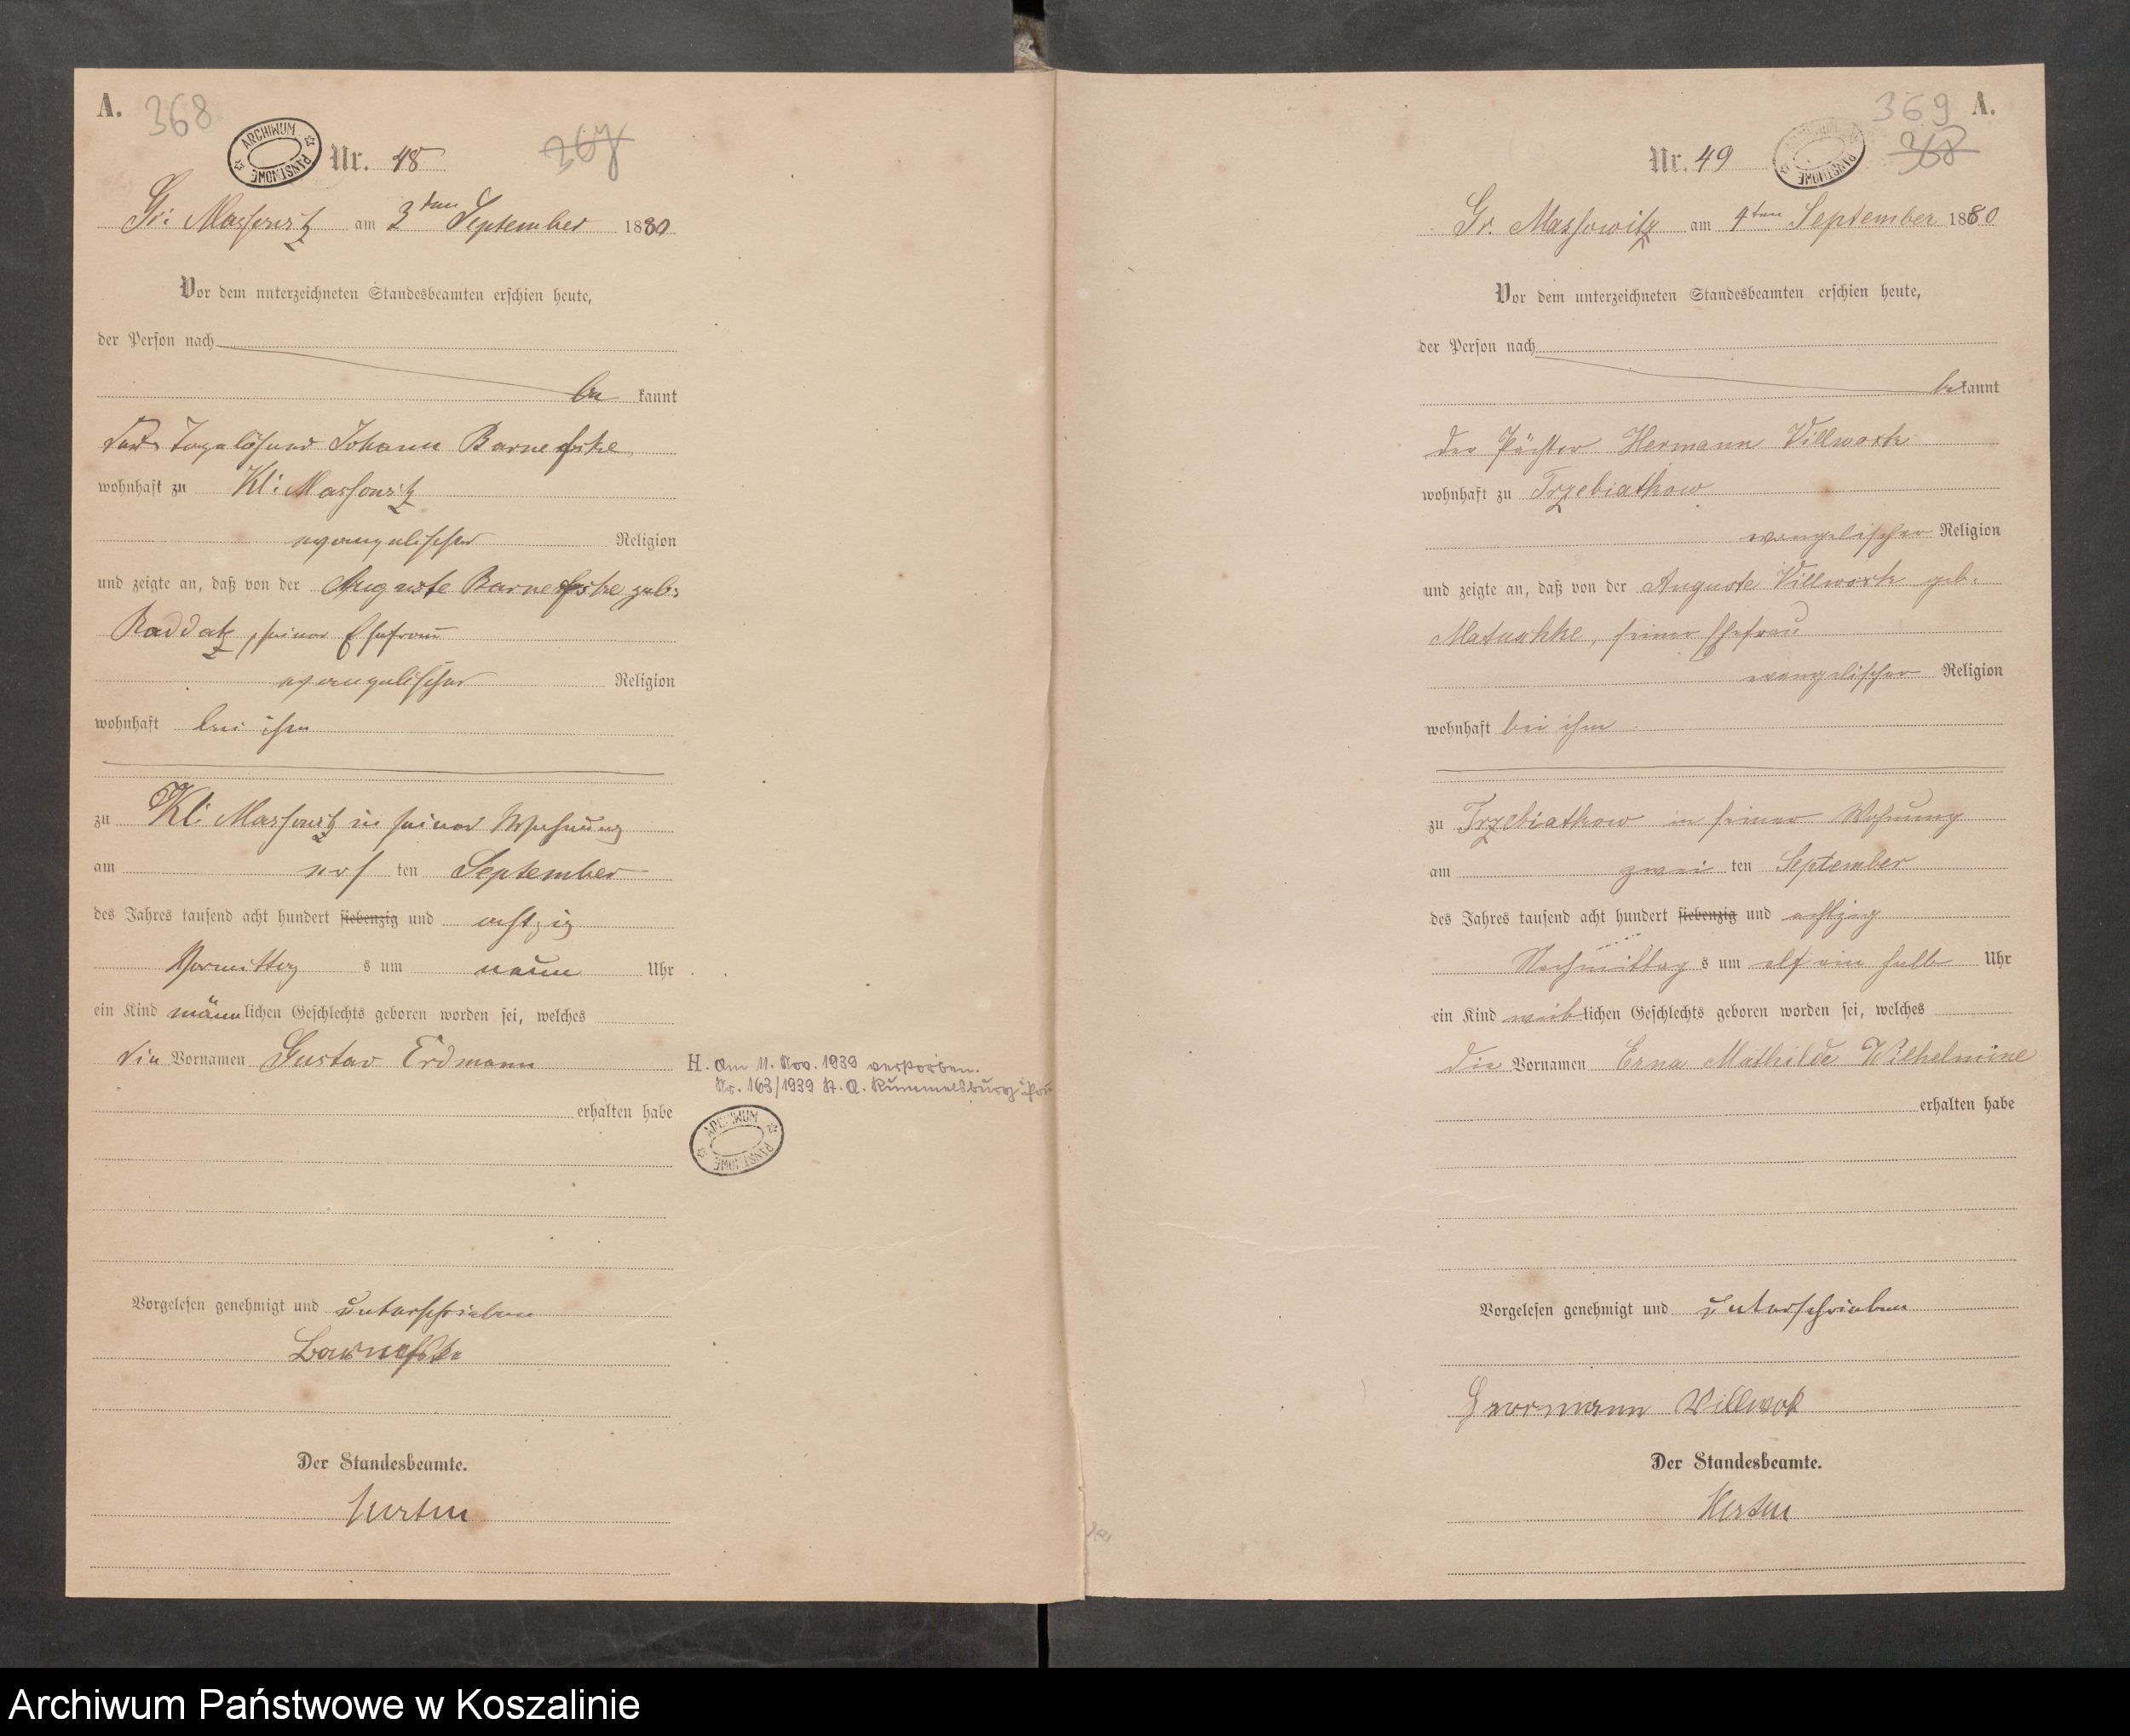 A. 368
ARCHIWUM PAŃSTWOWE
Nr. 48
267
Gr: Massowitz am 3ten September 1880
Vor dem unterzeichneten Standesbeamten erschien heute,
der Person nach
be kannt
Der Tagelöhner Johann Barnefske
wohnhaft zu Kl: Massowitz
evangelischer Religion
und zeigte an, daß von der Auguste Barnefske geb:
Raddatz, seiner Ehefrau
evangelischer Religion
wohnhaft bei ihm
zu Kl: Massowitz in seiner Wohnung
am ers ten September
des Jahres tausend acht hundert siebenzig und achtzig
Vormittag s um neun Uhr
ein Kind männlichen Geschlechts geboren worden sei, welches
die Vornamen Gustav Erdmann
erhalten habe
H. Am 11. Nov. 1939 verstorben.
Nr. 163/1939 St. A. Rummelsburg i. Pom
ARCHIWUM PAŃSTWOWE
Vorgelesen genehmigt und unterschrieben
Barnefske
Der Standesbeamte.
369 A.
Nr. 49
ARCHIWUM PAŃSTWOWE
368
Gr. Massowitz am 4ten September 1880
Vor dem unterzeichneten Standesbeamten erschien heute,
der Person nach
bekannt
der Pächter Hermann Villwock
wohnhaft zu Trzebiatkow
evangelischer Religion
und zeigte an, daß von der Auguste Villwock geb.
Matuschke, seiner Ehefrau
evangelischer Religion
wohnhaft bei ihm
zu Trzebiatkow in seiner Wohnung
am zwei ten September
des Jahres tausend acht hundert siebenzig und achtzig
Nachmittag s um elf ein halb Uhr
ein Kind weiblichen Geschlechts geboren worden sei, welches
die Vornamen Erna Mathilde Wilhelmine
erhalten habe
Vorgelesen genehmigt und unterschrieben
Herrmann Villwok
Der Standesbeamte.
Archiwum Państwowe w Koszalinie